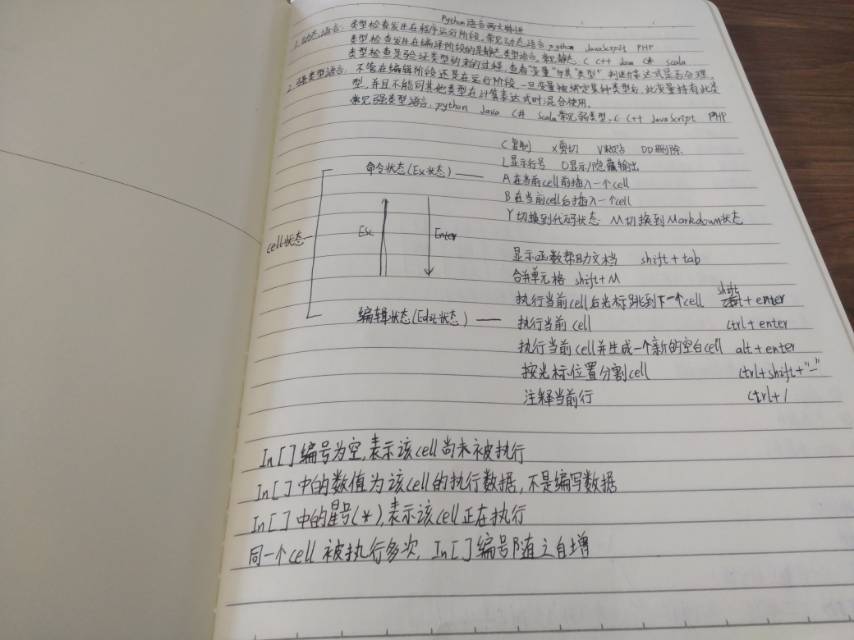 Python语言两大特性
1.动态语言：类型检查发生在程序运行阶段，常见动态语言 python JavaScript PHP
类型检查发生在编译阶段的是静态类型语言，常见静态，C C++ Java C# scala
类型检查是验证类型约束的过程，查看变量"与其"类型"判断行表达式是否合理，
2.强类型语言：不管在编辑阶段还是在运行阶段，一旦变量被绑定某种类型后，此变量持有此类
型，并且不能同其他类型在计算表达式时，混合使用。
常见强类型语言，python Java C# scala 常见弱类型，C C++ JavaScript PHP
C复制 X剪切 V粘贴 DD删除
L显示行号 O显示/隐藏输出
命令状态(Esc状态)
A在当前cell前插入一个cell
B在当前cell后插入一个cell
Y切换到代码状态 M切换到Markdown状态
cell状态
Esc
Enter
显示函数帮助文档 shift+tab
合并单元格 shift+M
执行当前cell后光标跳到下一个cell shift+enter
编辑状态(Edit状态)
执行当前cell ctrl+enter
执行当前cell并生成一个新的空白cell alt+enter
按光标位置分割cell ctrl+shift+"-"
注释当前行 ctrl+/
In[]编号为空，表示该cell尚未被执行
In[]中的数值为该cell的执行数据，不是编写数据
In[]中的星号(*)，表示该cell正在执行
同一个cell被执行多次，In[]编号随之自增